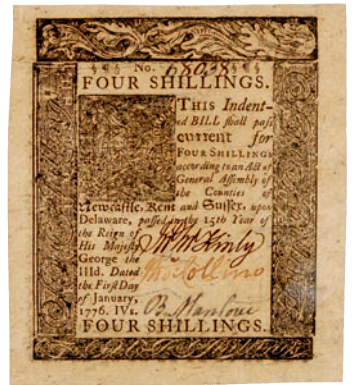 No. 68038
FOUR SHILLINGS.
THIS Indent-
ed BILL shall pass
current for
FOUR SHILLINGS
according to an Act of
General Assembly of
the Counties of
Newcastle, Kent and Sussex, upon
Delaware, passed in the 15th Year of
the Reign of
His Majesty
George the
IIId. Dated
the First Day
of January,
1776. IVs.
Jno McKinly
Thos Collins
B. Manlove
FOUR SHILLINGS.